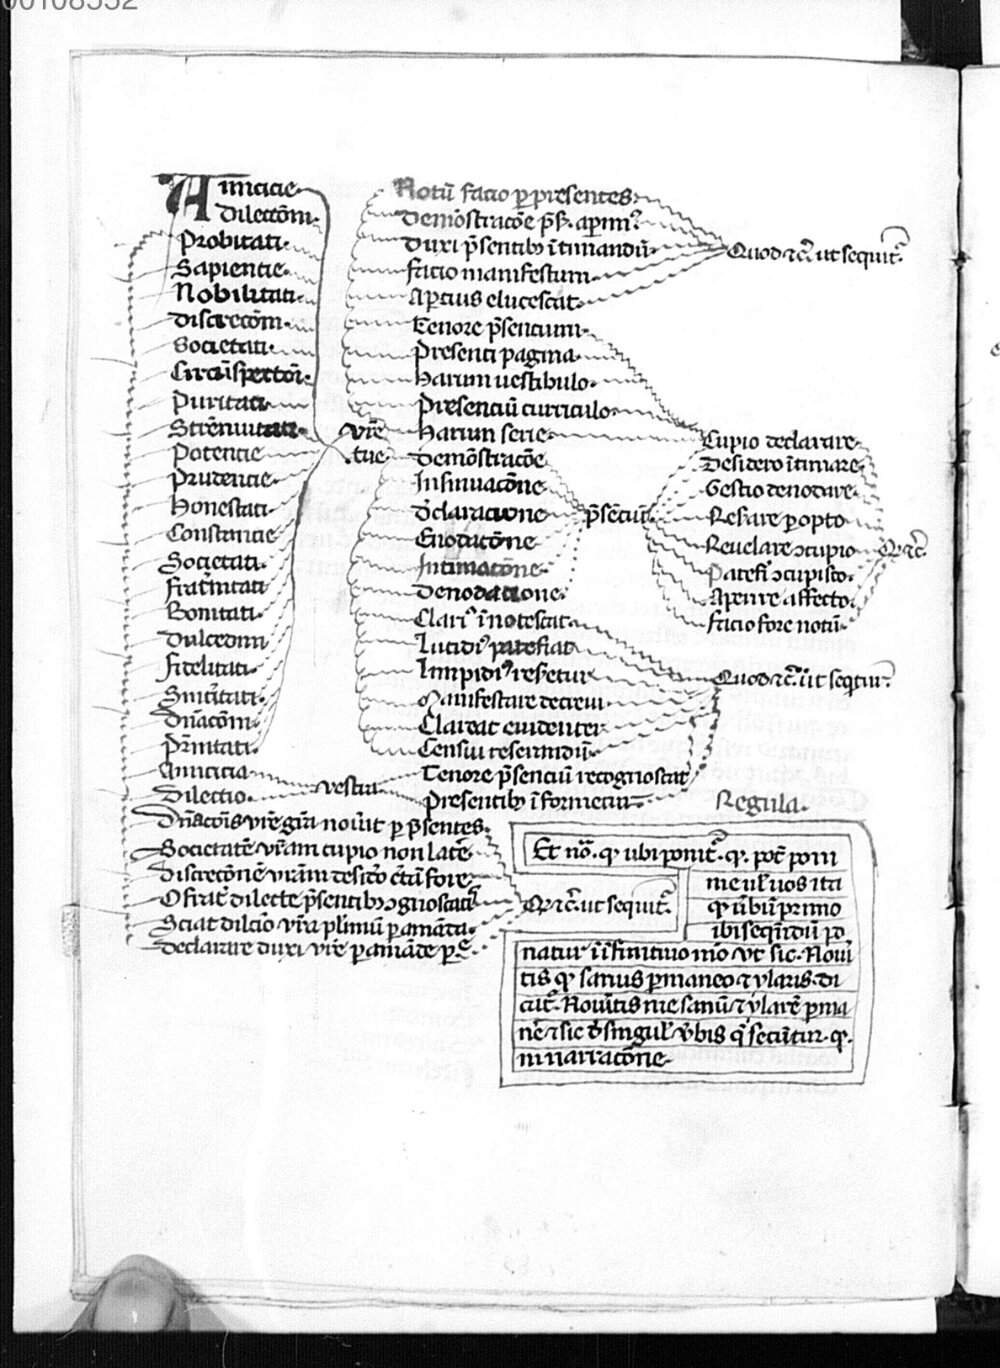 00108552
Amicicie
Dilectioni
Probitati
Sapientie
Nobilitati
Discrecōni
Societati
Circūspectōi
Puritati
Strēnuitati
Potentie
Prudencie
Honestati
Constantie
Societati
Frat̄nitati
Bonitati
Dulcedini
Fidelitati
Sincitati
Dnacōni
Prnitati
Amicicia
Dilectio
vrē
tue
vestra
Notū facio p presentes
Demōstracōe
Duxi p̄sentib ītimandū
facio manifestum
Apcius elucescat
Tenore p̄sentium
Presenti pagina
Harum vestibulo
Presenciū curriculo
Harum serie
Demōstracōe
Insinuacōne
Dclaracione
Enodacōne
Intimacōne
Denodacione
Clari īnotescat
Lucidi patefiat
Limpidi resetur
Manifestare decreui
Clareat euidenter
Censui reserandū
Tenore p̄senciū recognoscat
Presentib īformetur
p̄senciū
Quod ⁊c̄ ut sequit̄
Cupio declarare
Desidero ītimare
Gestio denodare
Resare p opto
Reuelare ɔcupio
Patefi ɔcupisco
Aperire affecto
facio fore notū
Qr ⁊c̄
Quod ⁊c̄ ut seqtur
Dnacōis vrē gra nouit p p̄sentes
Societatē vram cupio non latē
Discrecōnē vram desidero c̄tā fore
O frat dilecte p̄sentib ɔgnoscat
Sciat dilcio vra plimū p amāda
Declarare duxi vrē p amāde p
Qr ⁊c̄ ut sequit̄
Regula
Et nō q ubi ponit q pōt poni
me ul uos ita
q ūbū primo
ibi sequēdū po
natur ī īfinitiuo mō vt sic Noui
tis q sanus pmaneo ⁊ ylaris di
cit Nouitis me sanū ⁊ ylarē pma
nē ⁊ sic d singul vbis q secūtur q
in narracōne